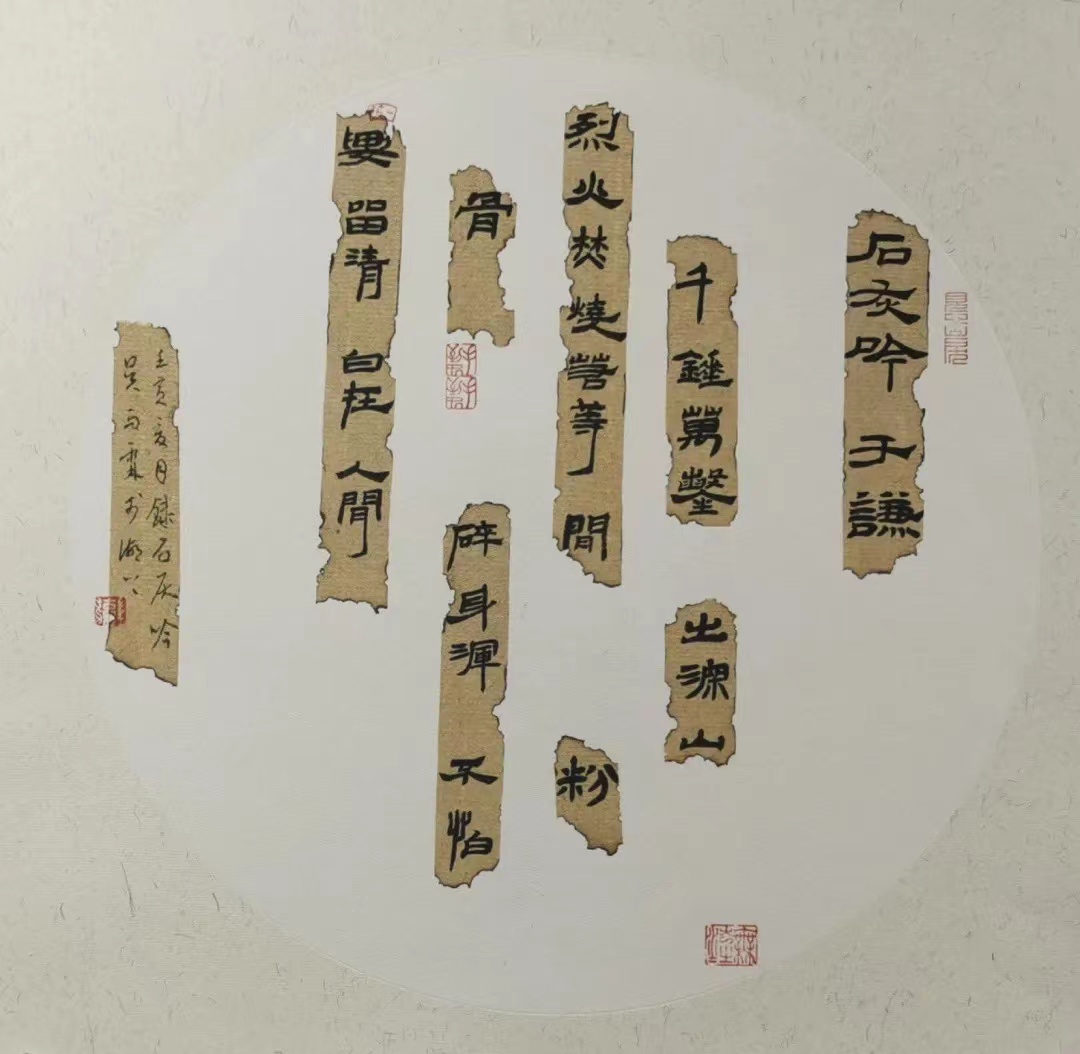 石灰吟 于謙
千錘萬鑿 出深山
烈火焚燒若等閒 粉
骨 碎身渾 不怕
要留清白在人閒
壬寅夏月錄石灰吟
吳雨霖於湖上